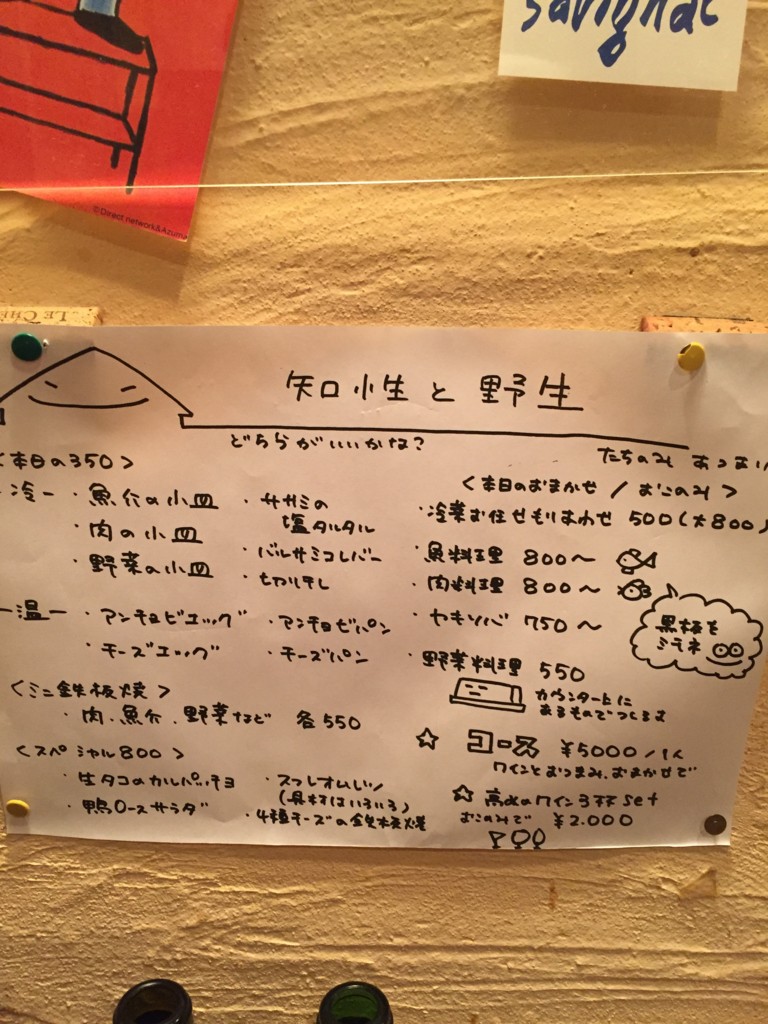 Savignac
© Direct network & Azuma
LE CHE
知性と野生
どちらがいいかな?
たちのみ あつまり
<本日の350>
-冷- ・魚介の小皿
・肉の小皿
・野菜の小皿
・ササミの
塩タルタル
・バルサミコレバー
・セロリ干し
-温- ・アンチョビエッグ
・チーズエッグ
・アンチョビパン
・チーズパン
<ミニ鉄板焼>
・肉.魚介.野菜など 各550
<スペシャル800>
・生タコのカルパッチョ
・鴨ロースサラダ
・スフレオムレツ
(具材はいろいろ)
・4種チーズの鉄板焼
<本日のおまかせ/おこのみ>
・冷菜お任せもりあわせ 500(大800)
・魚料理 800〜
・肉料理 800〜
・ヤキソバ 750〜
黒板を
ミテネ
・野菜料理 550
カウンター上に
あるものでつくるよ
☆ コース ¥5000/1人
ワインとおつまみ、おまかせで
☆ 高めのワイン3杯set
おこのみで ¥2.000